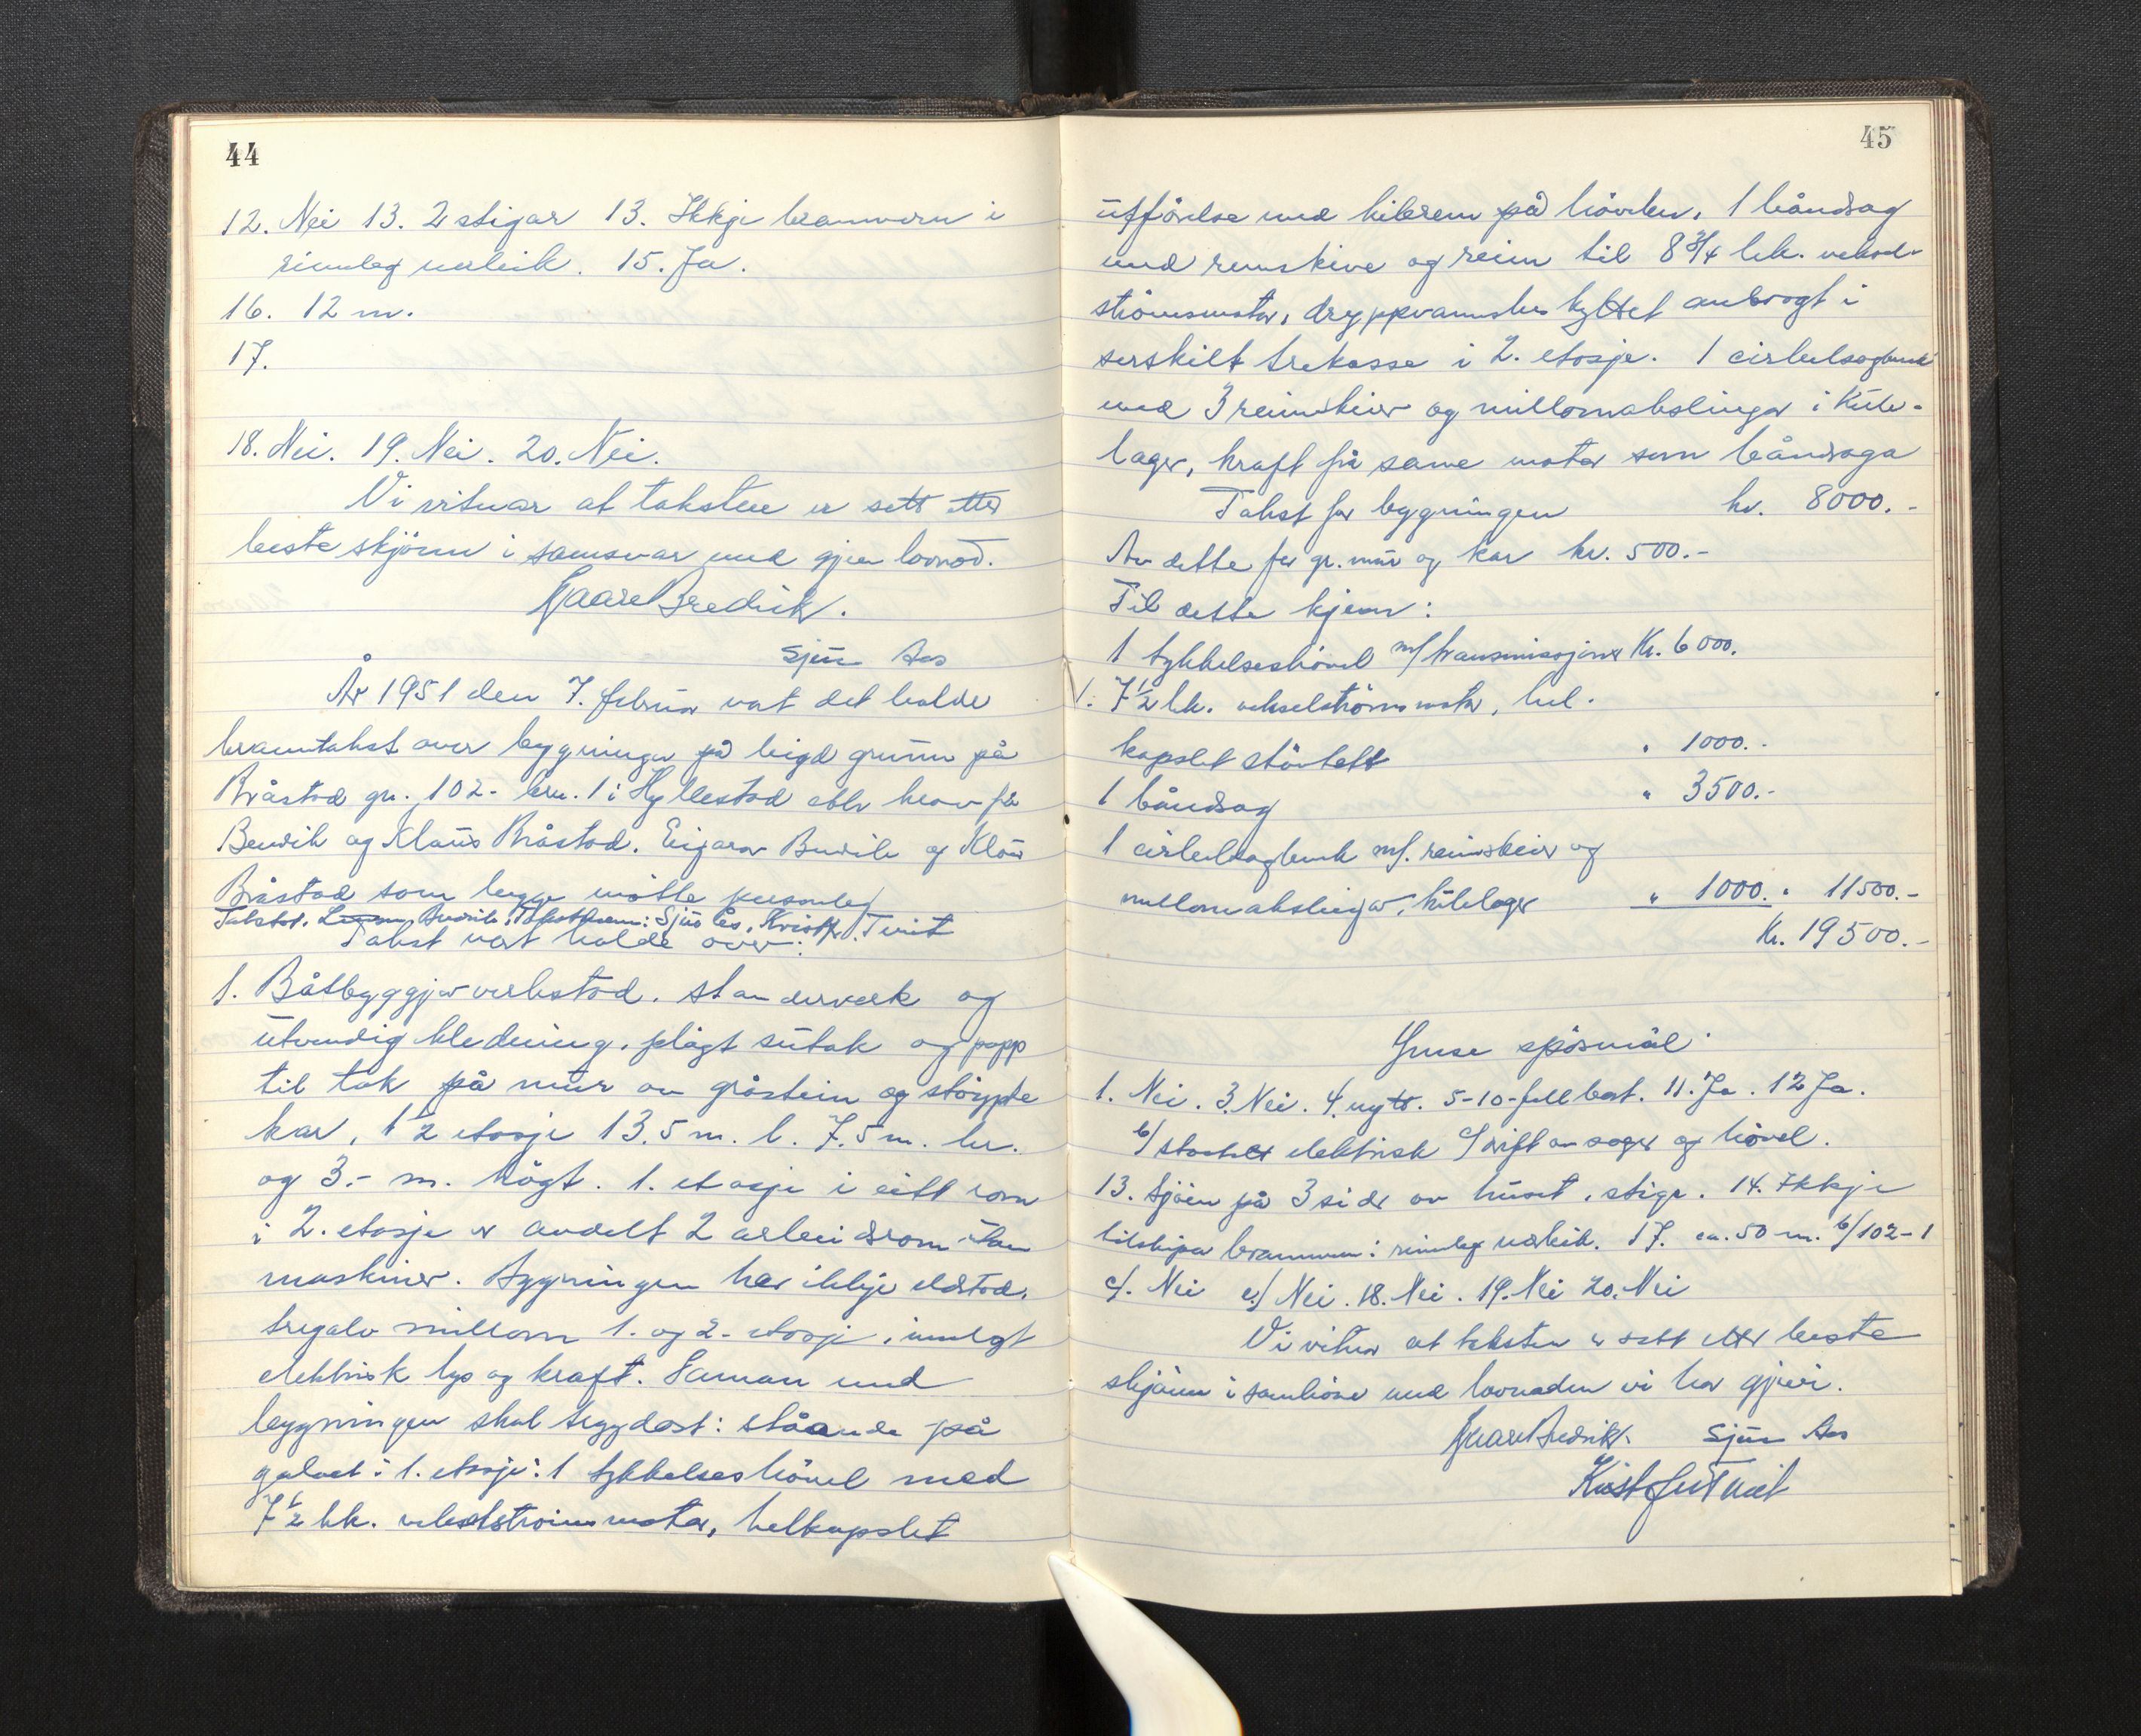 44
12. Nei 13. 2 stigar 13. Ikkje brannvern i
rimeleg nærleik. 15. Ja.
16. 12 m.
17.
18. Nei. 19. Nei. 20. Nei.
Vi vitnar at taksten er sett etter
beste skjönn i samsvar med gjeven lovnod.
Kaare Bredvik.
Sjur Aas
År 1951 den 7. februar vart det halde
branntakst over bygningar på leigd grunn på
Bråstad gn. 102 - brn. 1 i Hyllestad etter krav frå
Bendik og Klaus Bråstad. Eigarar Bendik og Klaus
Bråstad som begge mötte personleg
Takst vart halde over:
1. Båtbyggjarverkstad. Standerverk og
utvendig kledning, plögt sutak og papp
til tak på mur av gråstein og stöypte
kar, 1½ etasje 13.5 m. l. 7.5 m. br.
og 3.- m. högt. 1. etasje i eitt rom
i 2. etasje er avdelt 2 arbeidsrom utan
maskiner. Bygningen har ikkje eldstad.
tregolv millom 1. og 2. etasje, innlagt
elektrisk lys og kraft. Saman med
bygningen skal trygdast: ståande på
golvet i 1. etasje: 1 tykkelseshövel med
7½ hk. vekselströmsmotor, helkapslet
45
utförelse med kilerem på hövelen, 1 båndsag
med remskive og reim til 8¾ hk. veksel-
strömsmotor, dryppvannsbeskyttet anbragt i
serskilt trekasse i 2. etasje. 1 cirkelsagbenk
med 3 reimskiver og millomakslingar i kule-
lager, kraft frå same motor som båndsaga
Takst for bygningen kr. 8000.-
Av dette for gr. mur og kar kr. 500.-
Til dette kjem:
1 tykkelseshövel m/ transmissjoner Kr. 6000.
1. 7½ hk. vekselströmsmotor, hel-
kapslet stövtett " 1000.-
1 båndsag " 3500.-
1 cirkelsagbenk m/. reimskiver og
millomakslingar, kulelager " 1000. " 11500.-
Kr. 19500.-
Ymse spösmål:
1. Nei. 3. Nei. 4. nytt. 5-10-fell bort. 11. Ja. 12 Ja.
b/ elektrisk drift av sager og hövel.
13. Sjöen på 3 sider av huset, stige. 14. Ikkje
tilskipa brannvern i rimeleg nærleik. 17. ca. 50 m. b/ 102-1
c/. Nei e/ Nei. 18. Nei. 19. Nei 20. Nei
Vi vitnar at taksten er sett etter beste
skjönn i samhöve med lovnaden vi har gjeve.
Kaare Bredvik. Sjur Aas
Kristofer Tveit